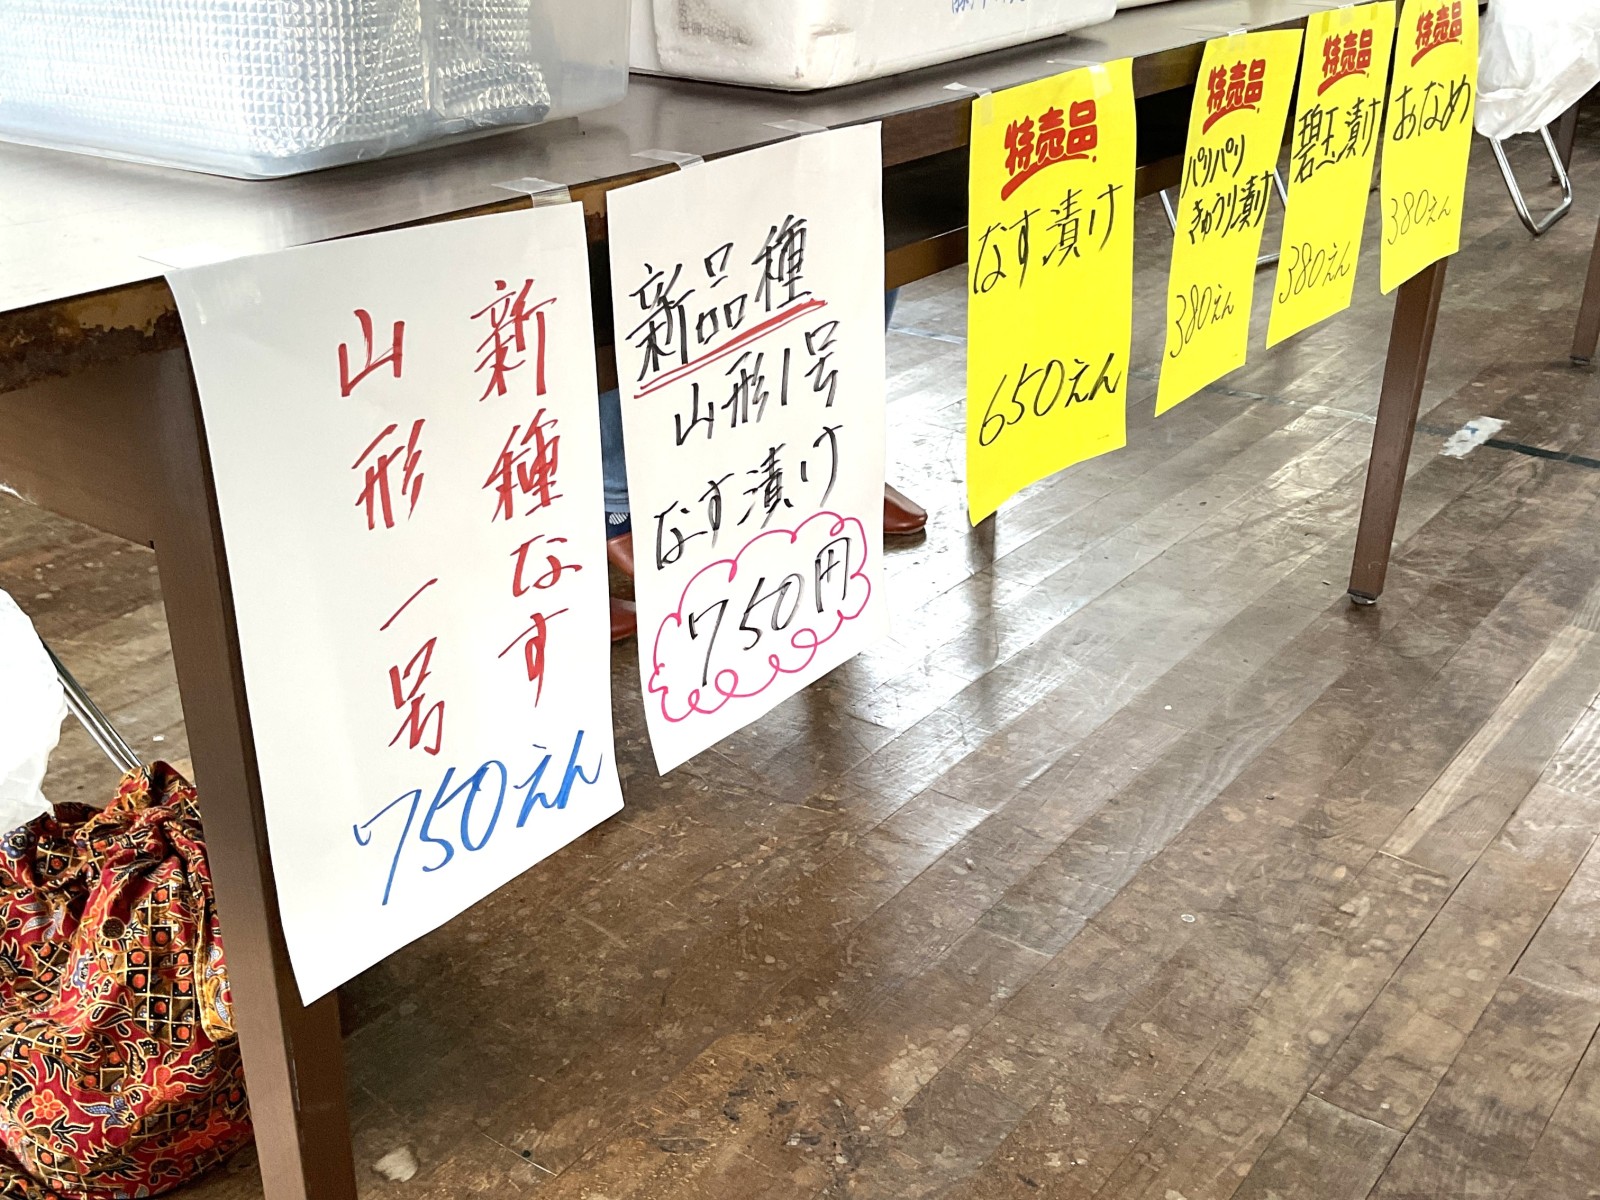 新種なす
山形一号
750えん
新品種
山形1号
なす漬け
750円
特売品
なす漬け
650えん
特売品
パリパリ
きゅうり漬け
380えん
特売品
碧玉漬け
380えん
特売品
おなめ
380えん